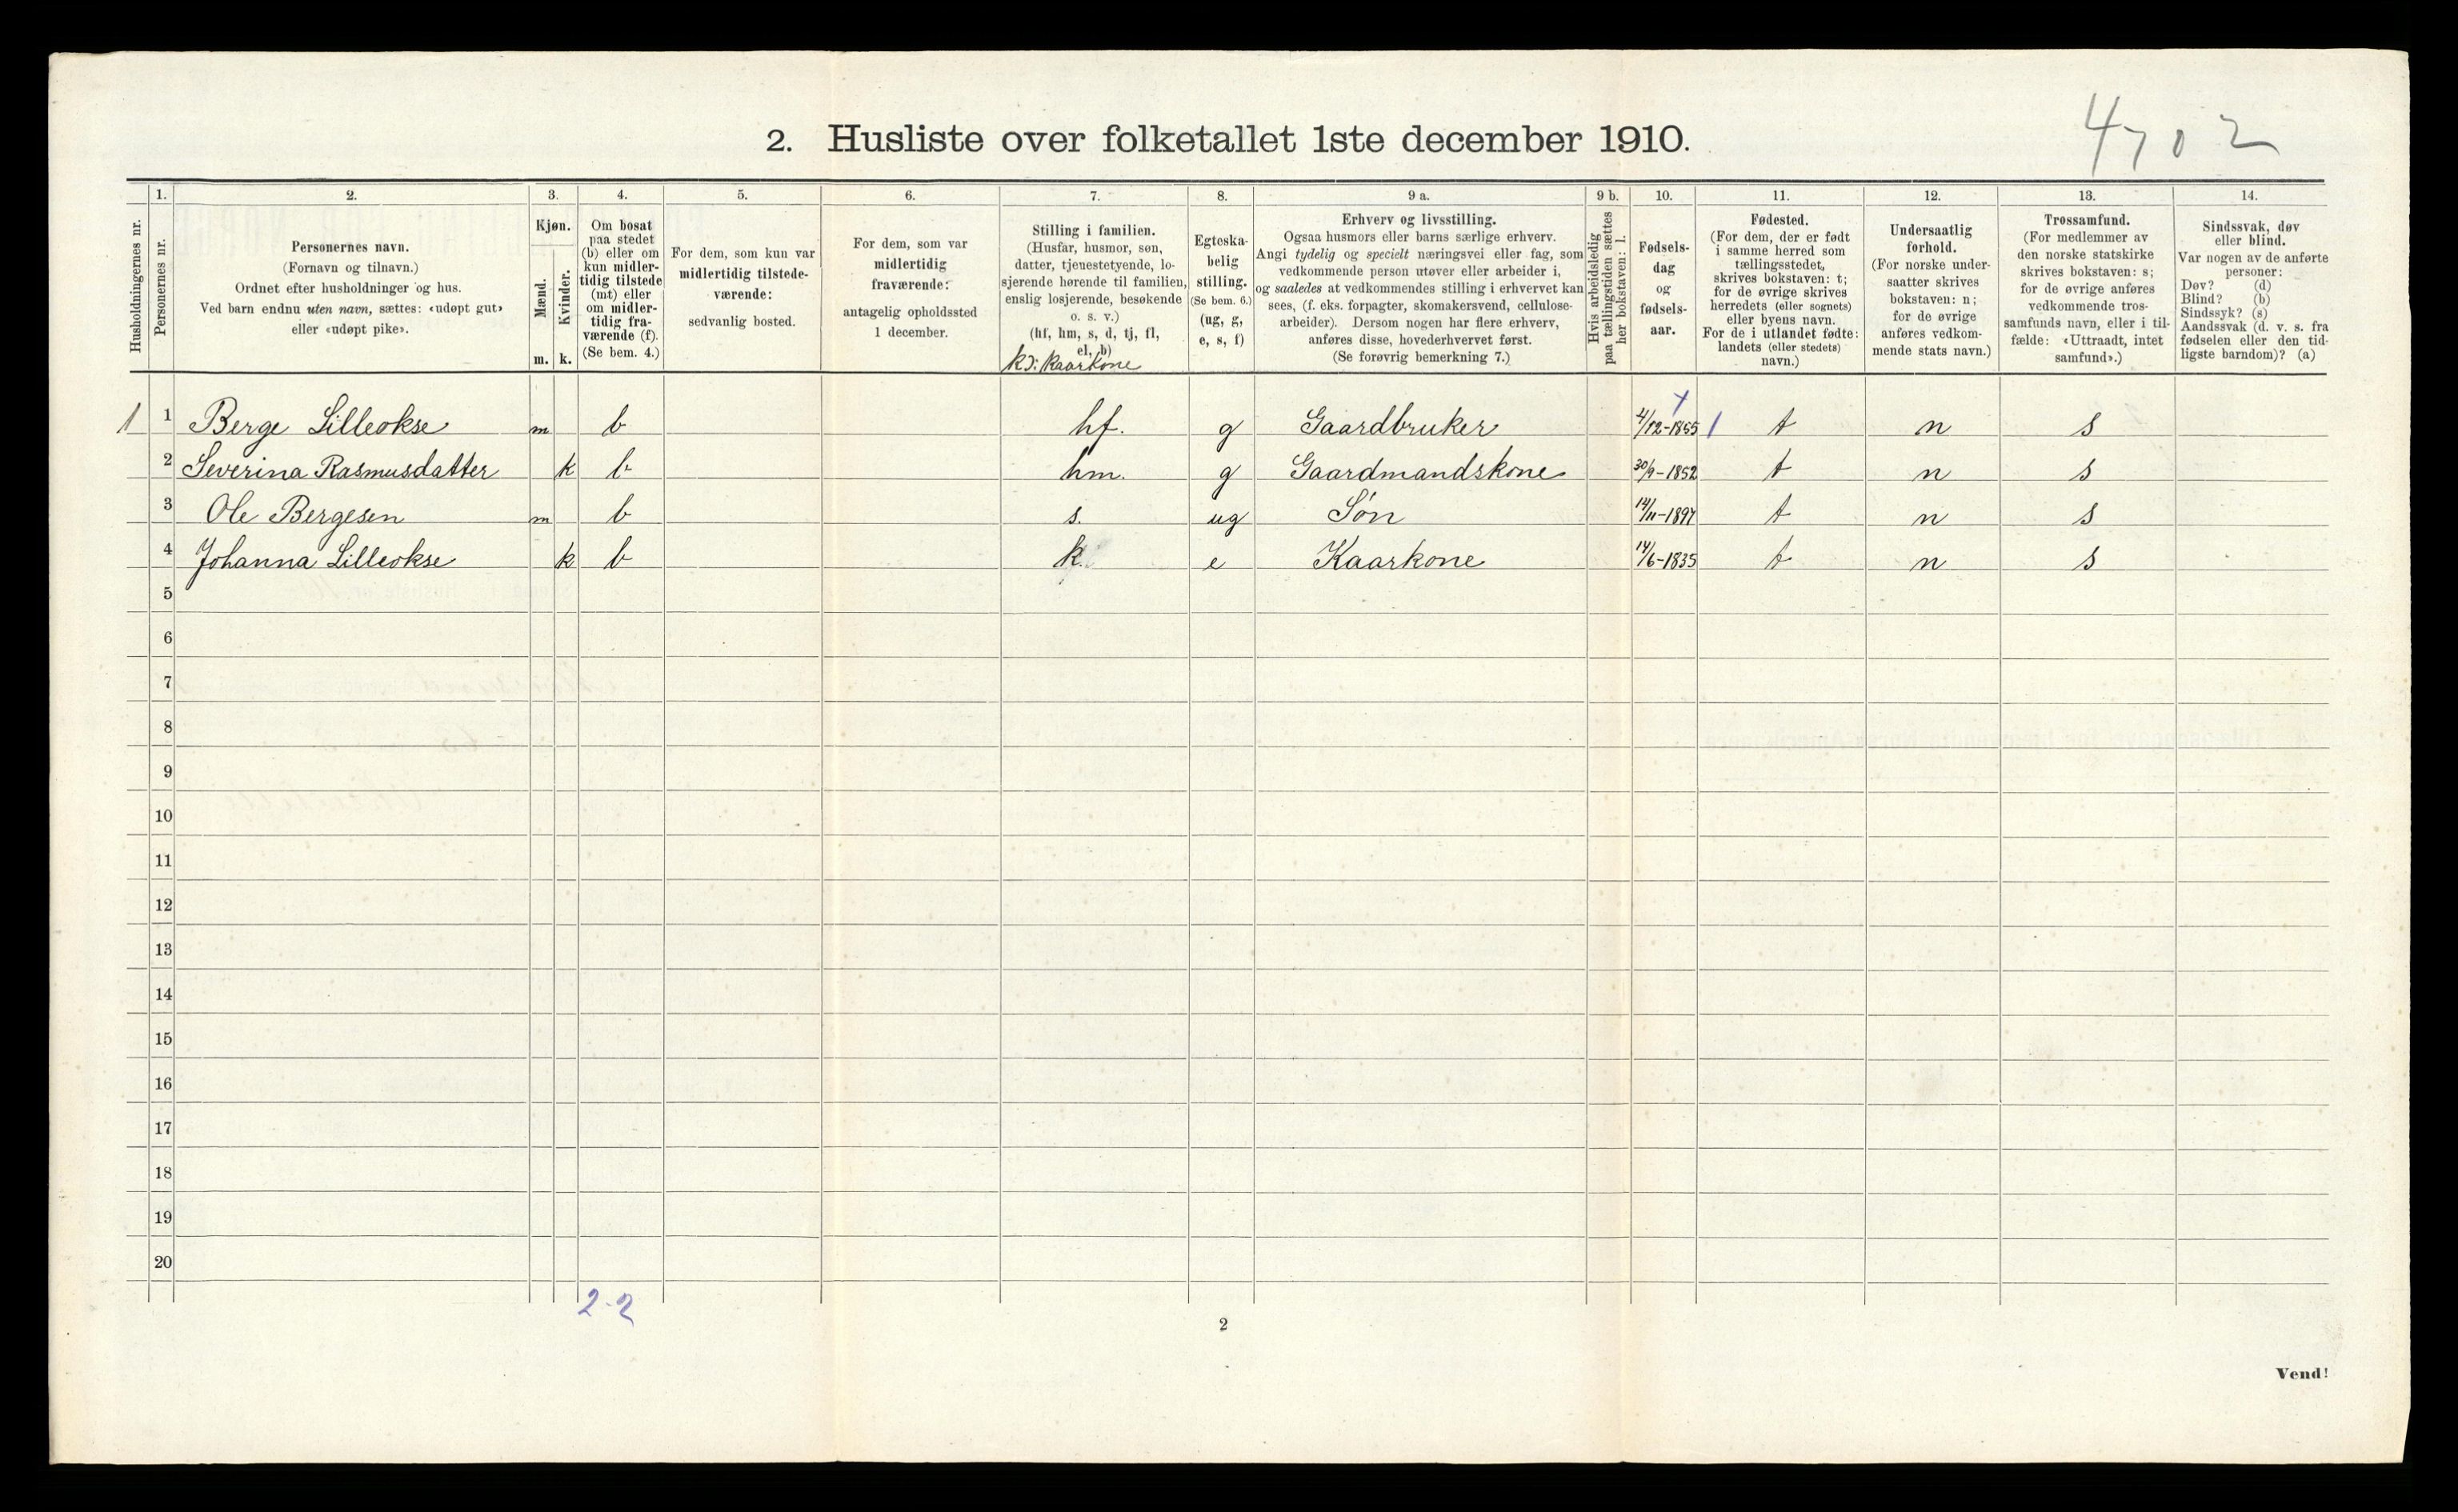 4702
2. Husliste over folketallet 1ste december 1910.
Husholdningernes nr.
1.
Personernes nr.
2.
Personernes navn.
(Fornavn og tilnavn.)
Ordnet efter husholdninger og hus.
Ved barn endnu uten navn, sættes: «udøpt gut»
eller «udøpt pike».
3.
Kjøn.
Mænd.
Kvinder.
m. k.
4.
Om bosat
paa stedet
(b) eller om
kun midler-
tidig tilstede
(mt) eller
om midler-
tidig fra-
værende (f).
(Se bem. 4.)
5.
For dem, som kun var
midlertidig tilstede-
værende:
sedvanlig bosted.
6.
For dem, som var
midlertidig
fraværende:
antagelig opholdssted
1 december.
7.
Stilling i familien.
(Husfar, husmor, søn,
datter, tjenestetyende, lo-
sjerende hørende til familien,
enslig losjerende, besøkende
o. s. v.)
(hf, hm, s, d, tj, fl,
el, b)
k): kaarkone
8.
Egteska-
belig
stilling.
(Se bem. 6.)
(ug, g,
e, s, f)
9 a.
Erhverv og livsstilling.
Ogsaa husmors eller barns særlige erhverv.
Angi tydelig og specielt næringsvei eller fag, som
vedkommende person utøver eller arbeider i,
og saaledes at vedkommendes stilling i erhvervet kan
sees, (f. eks. forpagter, skomakersvend, cellulose-
arbeider). Dersom nogen har flere erhverv,
anføres disse, hovederhvervet først.
(Se forøvrig bemerkning 7.)
9 b.
Hvis arbeidsledig
paa tællingstiden sættes
her bokstaven: l.
10.
Fødsels-
dag
og
fødsels-
aar.
11.
Fødested.
(For dem, der er født
i samme herred som
tællingsstedet,
skrives bokstaven: t;
for de øvrige skrives
herredets (eller sognets)
eller byens navn.
For de i utlandet fødte:
landets (eller stedets)
navn.)
12.
Undersaatlig
forhold.
(For norske under-
saatter skrives
bokstaven: n;
for de øvrige
anføres vedkom-
mende stats navn.)
13.
Trossamfund.
(For medlemmer av
den norske statskirke
skrives bokstaven: s;
for de øvrige anføres
vedkommende tros-
samfunds navn, eller i til-
fælde: «Uttraadt, intet
samfund».)
14.
Sindssvak, døv
eller blind.
Var nogen av de anførte
personer:
Døv? (d)
Blind? (b)
Sindssyk? (s)
Aandssvak (d. v. s. fra
fødselen eller den tid-
ligste barndom)? (a)
1 1 Berge Lilleokse m b hf. g Gaardbruker 4/12-1855 t n s
2 Severina Rasmusdatter k b hm. g Gaardmandskone 30/9-1852 t n s
3 Ole Bergesen m b s. ug Søn 14/11-1897 t n s
4 Johanna Lilleokse k b k. e Kaarkone 14/6-1835 t n s
5
6
7
8
9
10
11
12
13
14
15
16
17
18
19
20
2-2
2
Vend!